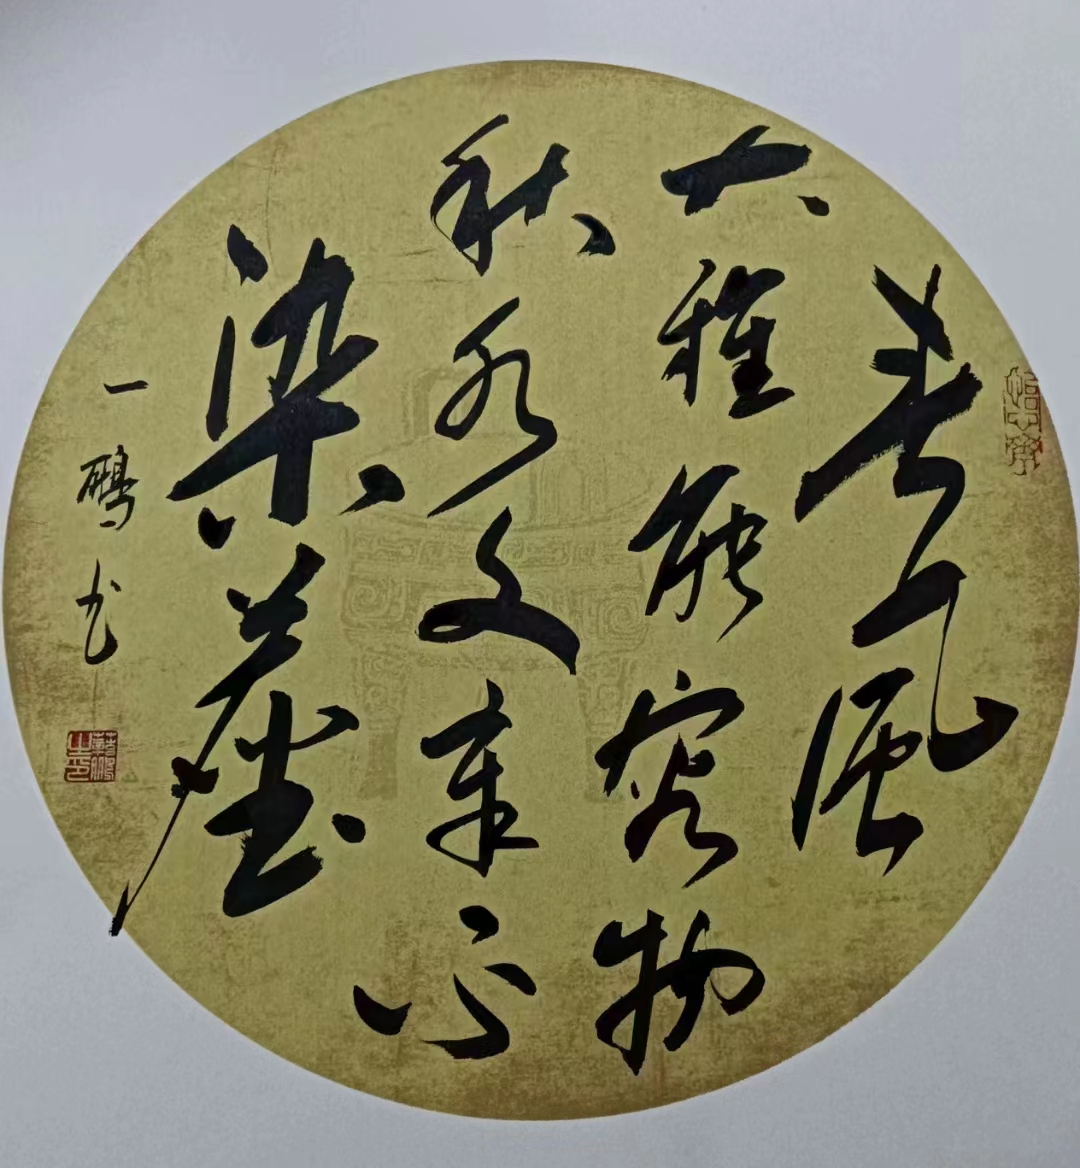 春風
大雅能容物
秋水文章不
染塵
一鵬书